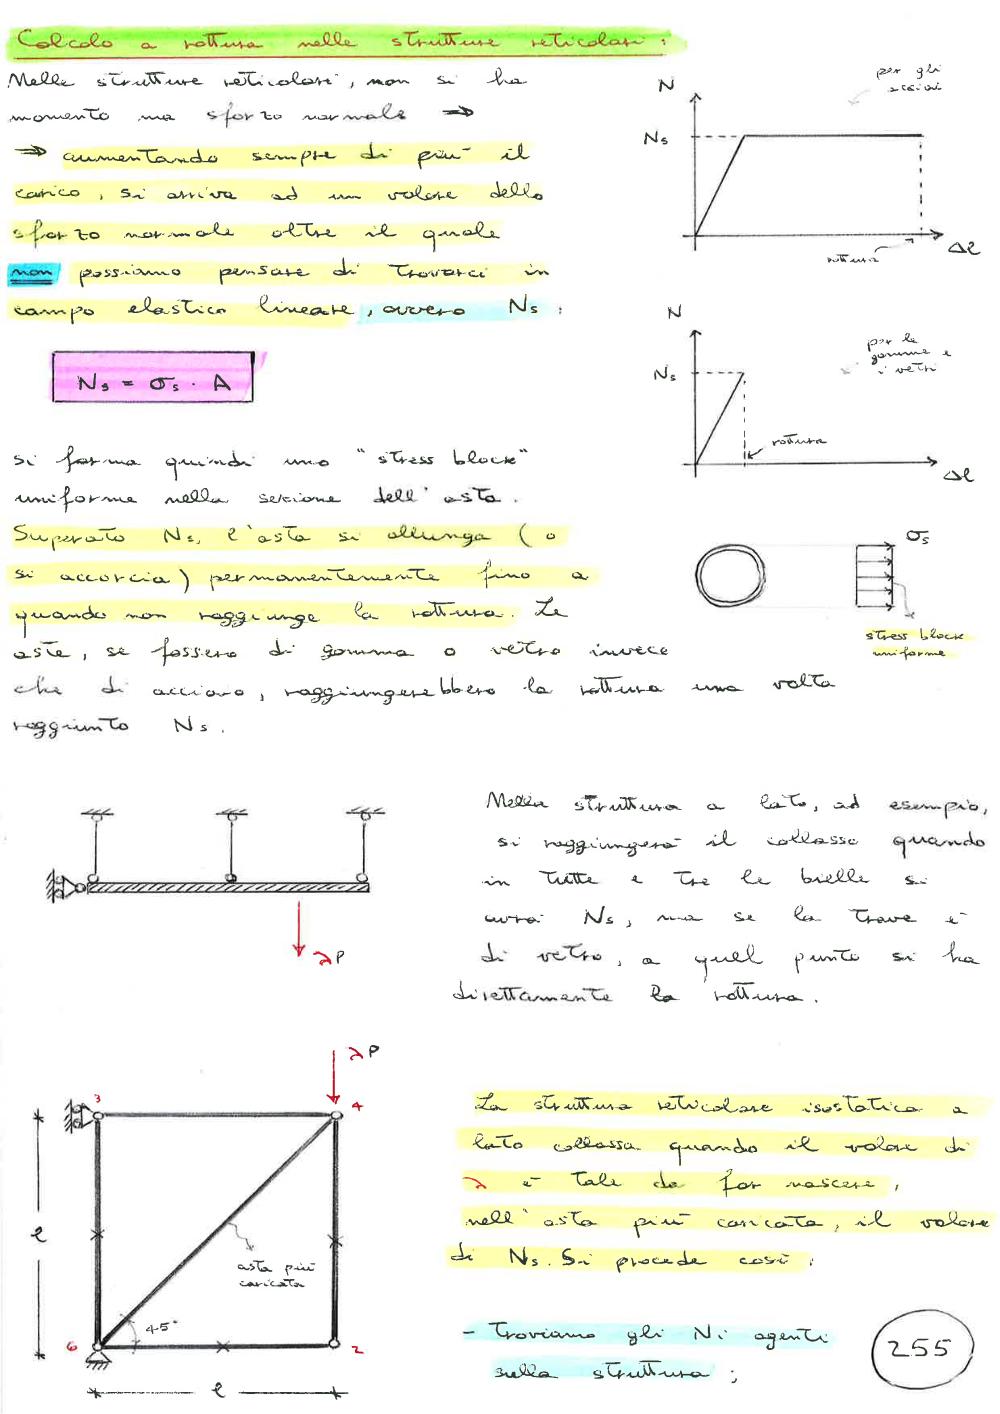 Calcolo a rottura nelle strutture reticolari:
Nelle strutture reticolari, non si ha
momento ma sforzo normale ⇒
⇒ aumentando sempre di più il
carico, si arriva ad un valore dello
sforzo normale oltre il quale
non possiamo pensare di trovarci in
campo elastico lineare, ovvero Ns:
Ns = σs · A
N
per gli
acciai
Ns
rottura
Δl
N
per le
gomme e
i vetri
Ns
rottura
Δl
si forma quindi uno "stress block"
uniforme nella sezione dell'asta.
Superato Ns, l'asta si allunga (o
si accorcia) permanentemente fino a
quando non raggiunge la rottura. Le
aste, se fossero di gomma o vetro invece
che di acciaio, raggiungerebbero la rottura una volta
raggiunto Ns.
σs
stress block
uniforme
λP
Nella struttura a lato, ad esempio,
si raggiungerà il collasso quando
in tutte e tre le bielle si
avrà Ns, ma se la trave è
di vetro, a quel punto si ha
direttamente la rottura.
λP
3
4
l
asta più
caricata
45°
6
2
l
La struttura reticolare isostatica a
lato collassa quando il valore di
λ è tale da far nascere,
nell'asta più caricata, il valore
di Ns. Si procede così:
- Troviamo gli Ni agenti
sulla struttura;
255